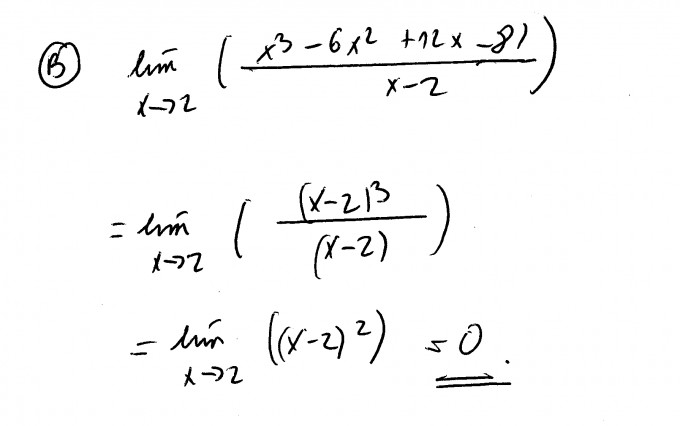 B) lim x→2 ( (x³ - 6x² + 12x - 8) / (x-2) )
= lim x→2 ( (x-2)³ / (x-2) )
= lim x→2 ((x-2)²) = 0.